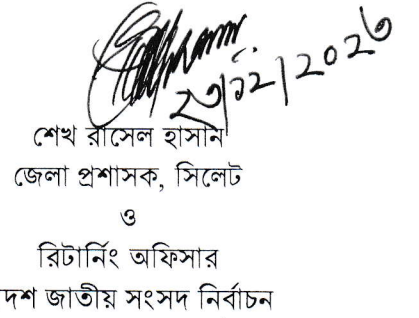 ২৩/১২/২০২৩
শেখ রাসেল হাসান
জেলা প্রশাসক, সিলেট
ও
রিটার্নিং অফিসার
দশ জাতীয় সংসদ নির্বাচন